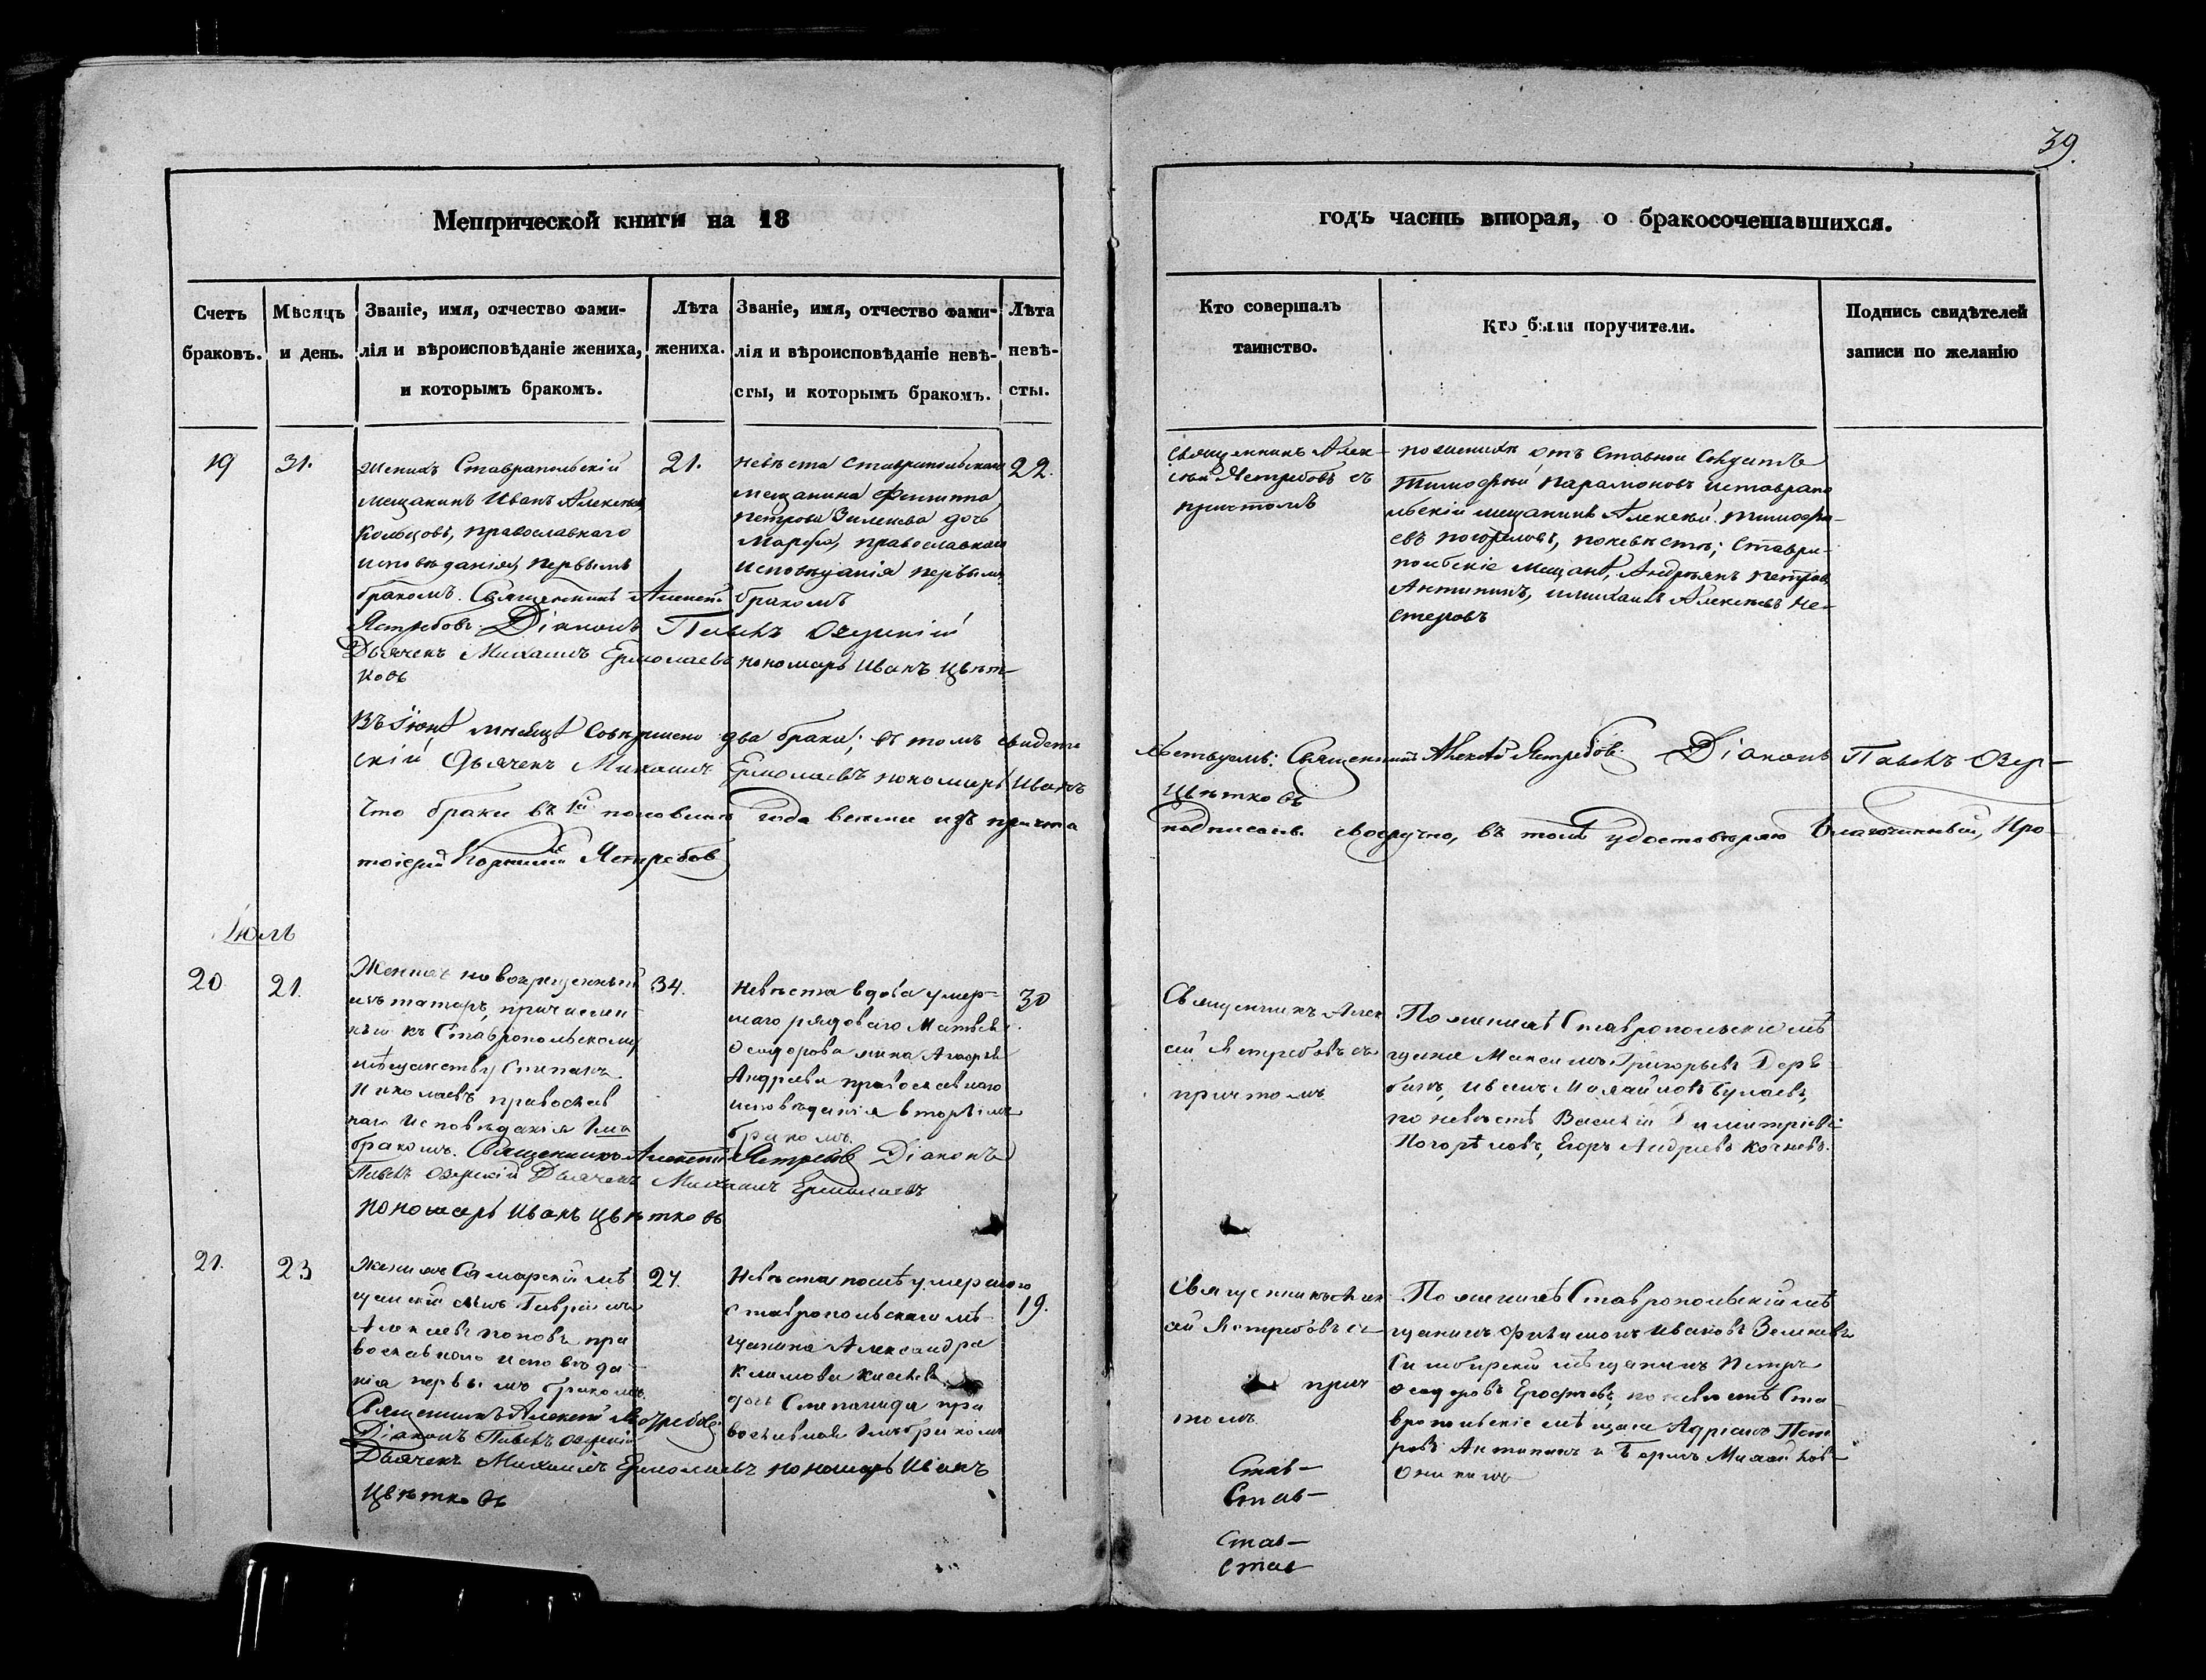 39.
Метрической книги на 18
годъ часть вторая, о бракосочетавшихся.
Счетъ браковъ.
Мѣсяцъ и день.
Званіе, имя, отчество фами-
лія и вѣроисповѣданіе жениха,
и которымъ бракомъ.
Лѣта
жениха.
Званіе, имя, отчество фами-
лія и вѣроисповѣданіе невѣ-
сты, и которымъ бракомъ.
Лѣта
невѣ-
сты.
Кто совершалъ
таинство.
Кто были поручители.
Подпись свидѣтелей
записи по желанію
19
31.
Женихъ Ставропольскій
мещанинъ Иванъ Алексѣевъ
Кольцовъ, православнаго
исповѣданія, первымъ
бракомъ. Священникъ Алексѣй
Ястребовъ Діаконъ Павелъ Озерскій
Дьячекъ Михаилъ Ермолаевъ пономарь Иванъ Цвѣт-
ковъ
21.
Невѣста Ставропольскаго
мещанина Филиппа
Петрова Зиленева дочь
Марфа, православнаго
исповѣданія первымъ
бракомъ
22.
Священникъ Алек-
сѣй Ястребовъ съ
причтомъ
по женихѣ отъ Ставной Солдатъ
Тимофѣй Парамоновъ и ставропо
льскій мещанинъ Алексѣй Тимофѣ-
евъ Погореловъ, по невѣстѣ; Ставро-
польскіе мещанѣ, Андреянъ Петровъ
Антипинъ, и Михаилъ Алексѣевъ Не-
стеровъ
Въ Іюнѣ мѣсяцѣ совершено два брака; въ томъ свидѣте
льствуемъ: Священникъ Алексѣй Ястребовъ Діаконъ Павелъ Озер-
скій Дьячекъ Михаилъ Ермолаевъ пономарь Иванъ
Цвѣтковъ
Что браки въ 1й половинѣ года всеми изъ причта
подписаны своеручно, въ томъ удостовѣряю Благочинный, Про-
тоіерей Ястребовъ
Іюль
20.
21.
Женихъ новокрещенный
изъ татаръ, причислен-
ный къ Ставропольскому
мѣщанству Степанъ
Николаевъ православ
наго исповѣданія 1мъ
бракомъ. Священникъ Алексѣй Ястребовъ Діаконъ
Павелъ Озерскій Дьячекъ Михаилъ Ермолаевъ
пономарь Иванъ Цвѣтковъ
34.
Невѣста вдова умер-
шаго рядоваго Матвѣя
Ѳеодорова жена
Андреева православнаго
исповѣданія вторымъ
бракомъ.
30
Священникъ Алек
сѣй Ястребовъ съ
причтомъ
По женихѣ Ставропольскіе мѣ
щане Максимъ Григорьевъ Деря
бинъ, Иванъ Михайловъ Булаевъ,
по невѣстѣ Василій Димитріевъ
Погорѣловъ, Егоръ Андреевъ Кочневъ.
21.
23
Женихъ Самарскій мѣ
щанскій сынъ Гавріилъ
Алексѣевъ Поповъ, пра
вославнаго исповѣда-
нія первымъ бракомъ.
Священникъ Алексѣй Ястребовъ
Діаконъ Павелъ Озерскій
Дьячекъ Михаилъ Ермолаевъ пономарь Иванъ
Цвѣтковъ
24.
Невѣста послѣ умершаго
ставропольскаго мѣ-
щанина Александра
Климова
дочь Степанида пра
вославная 1мъ бракомъ
19.
Священникъ Алек
сѣй Ястребовъ съ
прич
томъ
По женихѣ Ставропольскій мѣ
щанинъ Филимонъ Ивановъ Зеленевъ
Симбирскій мѣщанинъ Петръ
Ѳеодоровъ Ерофѣевъ, по невѣстѣ Ста
вропольскіе мѣщане Адріанъ Пет
ровъ Антипинъ и Борисъ Михайловъ
Оникинъ
Став-
Став-
Став-
Став